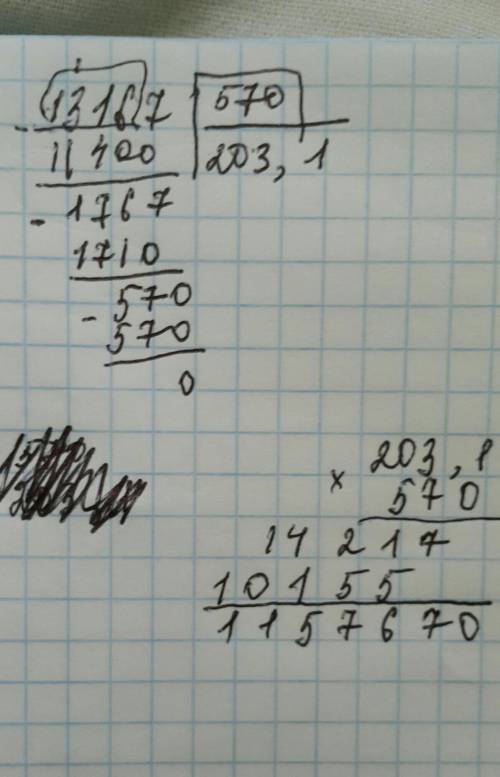 - 13167 570
11400 203,1
- 1767
1710
- 570
570
0
203,1
× 570
14217
10155
1157670